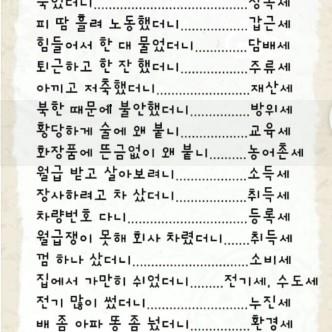 죽었더니..................상속세
피 땀 흘려 노동했더니..........갑근세
힘들어서 한 대 물었더니........담배세
퇴근하고 한 잔 했더니..........주류세
아끼고 저축했더니..............재산세
북한 때문에 불안했더니.........방위세
황당하게 술에 왜 붙니..........교육세
화장품에 뜬금없이 왜 붙니.......농어촌세
월급 받고 살아보려니...........소득세
장사하려고 차 샀더니...........취득세
차량번호 다니..................등록세
월급쟁이 못해 회사 차렸더니.....취득세
껌 하나 샀더니.................소비세
집에서 가만히 쉬었더니.........전기세, 수도세
전기 많이 썼더니...............누진세
배 좀 아파 똥 좀 눴더니........환경세